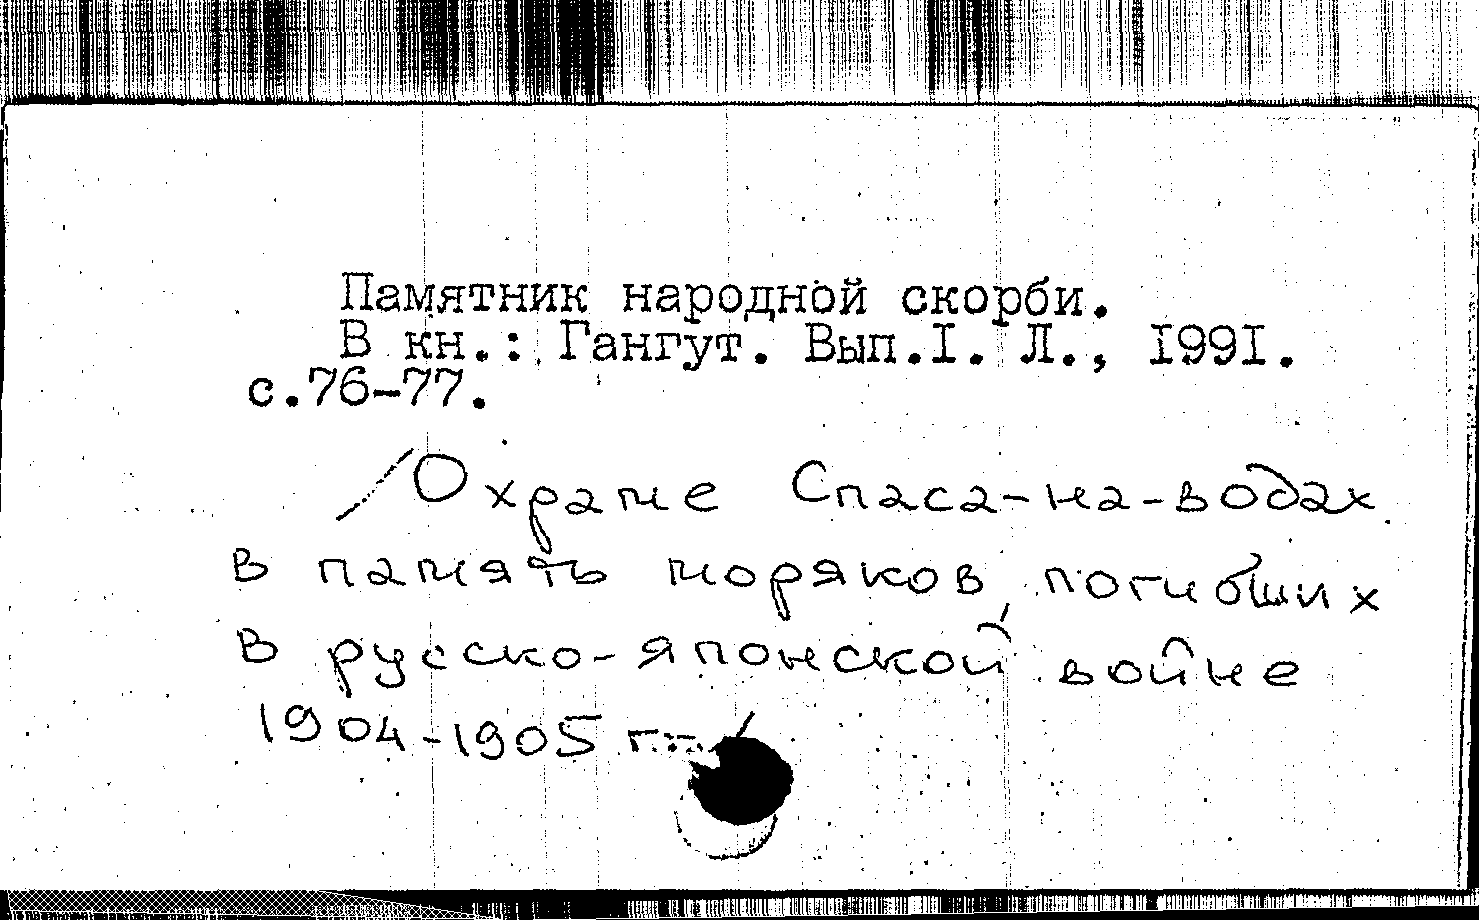 Памятник народной скорби.
В кн.: Гангут. Вып.I. Л., I99I.
с.76-77.
/О храме Спаса-на-водах
в память моряков, погибших
в русско-японской войне
1904-1905 гг./